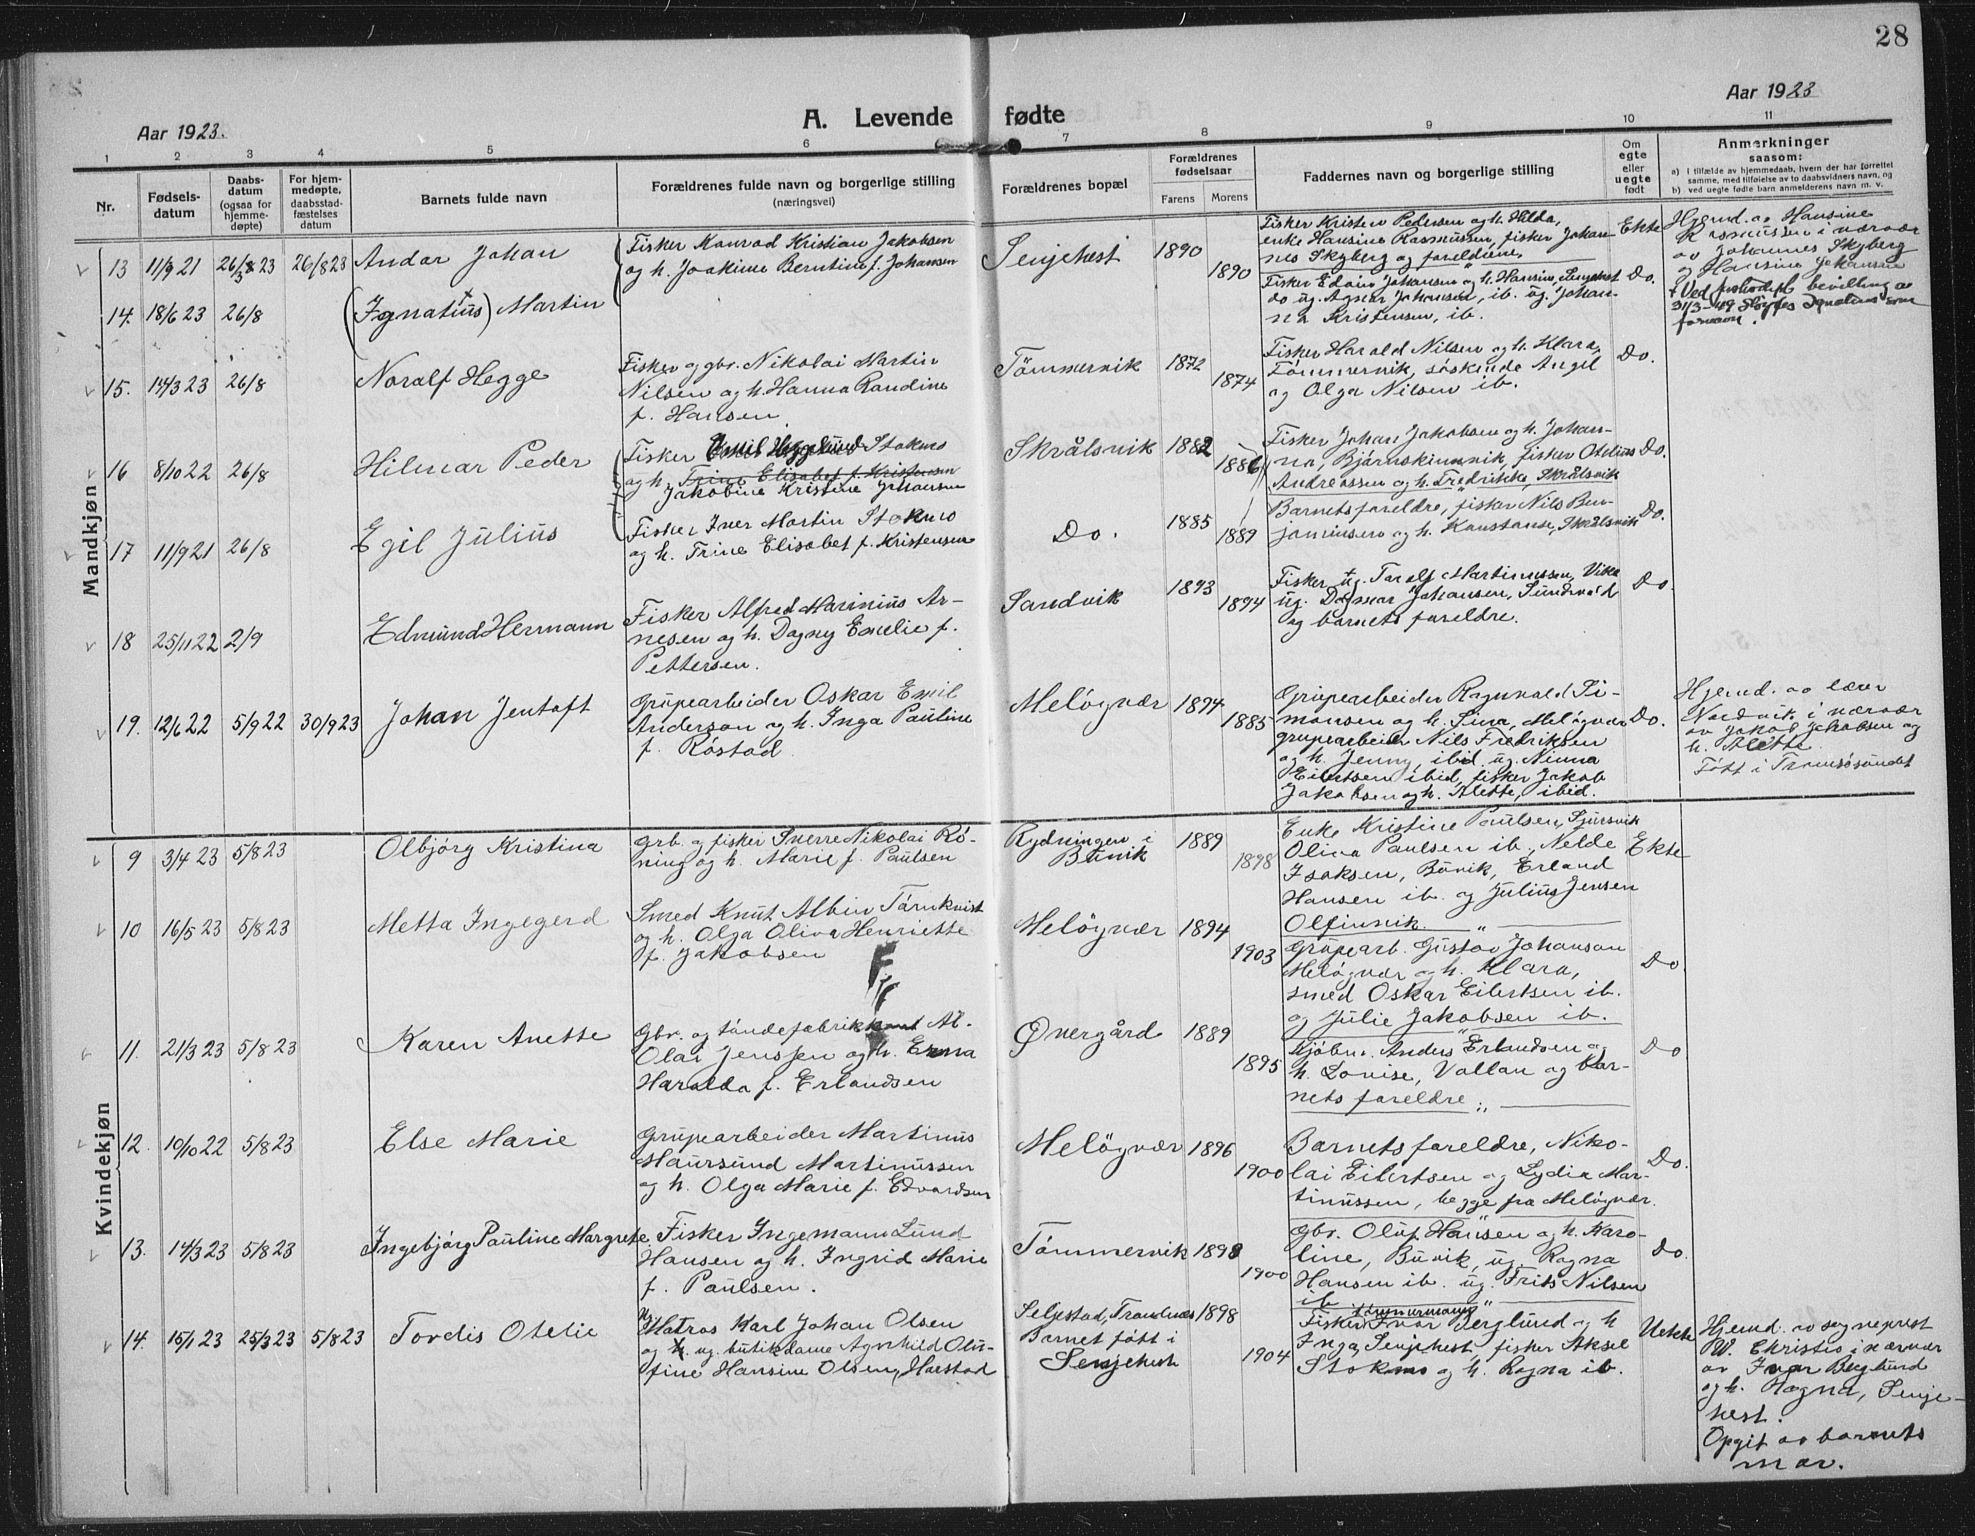 28
Aar 1923.
A. Levende fødte
Aar 1923
1 2 3 4 5 6 7 8 9 10 11
Nr.
Fødsels-
datum
Daabs-
datum
(ogsaa for
hjemme-
døpte)
For hjem-
medøpte,
daabsstad-
fæstelses
datum
Barnets fulde navn
Forældrenes fulde navn og borgerlige stilling
(næringsvei)
Forældrenes bopæl
Forældrenes
fødselsaar
Farens Morens
Faddernes navn og borgerlige stilling
Om
egte
eller
uegte
født
Anmerkninger
saasom:
a) i tilfælde av hjemmedaab, hvem der har forrettet
samme, med tilføielse av to daabsvidners navn, og
b) ved uegte fødte barn anmelderens navn m. v.
Mandkjøn
13 11/9 21 26/8 23 26/8 23 Andar Johan
Fisker Konrad Kristian Jakobsen
og h. Joakime Berntine f. Johansen
Senjehest 1890 1890
Fisker Kristen Pedersen og h. Hilda,
enke Hansine Rasmussen, fisker Johan-
nes Skyberg og foreldrene.
Ekte
Hjemd. av Hansine
Rasmussen i nærvær
av Johannes Skyberg
og Hansine Johansen
14. 18/6 23 26/8 (Ignatius) Martin
Fisker Edvin Johansen og h. Hansine, Senjehest
do ug. Agnar Johansen, ib. ug. Johan-
na Kristensen, ib.
Do.
+ Ved bevilling av
31/3-49 sløifes Ignatius som
fornavn.
15. 14/3 23 26/8 Noralf Hegge
Fisker og gbr. Nikolai Martin
Nilsen og h. Hanna Randine
f. Hansen
Tömmervik 1872 1874
Fisker Harald Nilsen og h. Klara,
Tömmervik, søskinde Angel
og Olga Nilsen ib.
Do.
16 8/10 22 26/8 Hilmar Peder
Fisker Emil Hegelund Stokmo
og h. Trine Elisabet f. Kristensen
Jakobine Kristine Johansen
Skrålsvik 1882 1886
Fisker Johan Jakobsen og h. Johan-
na, Bjørnskinnvik, fisker Otelius
Andreassen og h. Fredrikke, Skrålsvik
Do.
17 11/9 21 26/8 Egil Julius
Fisker Iver Martin Stokmo
og h. Trine Elisabet f. Kristensen
Do. 1885 1889
Barnets foreldre, fisker Nils Ben-
jaminsen og h. Konstanse, Skrålsvik
Do.
18 25/11 22 2/9 Edmund Hermann
Fisker Alfred Marinius Ar-
nesen og h. Dagny Emelie f.
Pettersen.
Sandvik 1893 1894
Fisker ug. Toralf Martinussen, Vika
ug. Dagmar Johansen, Sundvold
og barnets foreldre.
Do
19. 12/6 22 5/9 22 30/9 23 Johan Jentoft
Grupearbeider Oskar Emil
Anderson og h. Inga Pauline
f. Röstad
Melögvær 1894 1885
Grupearbeider Ragnvald Si-
monsen og h. Sina, Melögvær
grupearbeider Nils Fredriksen
og h. Jenny, ibid. ug. Ninna
Eilertsen ibid, fisker Jakob
Jakobsen og h. Alette, ibid.
Do.
Hjemd. av lærer
Nordvik i nærvær
av Jakob Jakobsen og
h. Alette.
Født i Tromsösundet
Kvindekjøn
9 3/4 23 5/8 23 Olbjörg Kristina
Grb. og fisker Sverre Nikolai Rö-
ning og h. Marie f. Paulsen
Rydningen i
Buvik
1889 1898
Enke Kristine Paulsen, Gjursvik
Oliva Paulsen ib., Nelde
Isaksen, Buvik, Erland
Hansen ib. og Julius Jensen
Olfinvik.
Ekte
10 16/5 23 5/8 23 Metta Ingegerd
Smed Knut Albin Törnkvist
og h. Olga Oliva Henriette
f. Jakobsen
Melögvær 1894 1903
Grupearb. Gustav Johanson
Melögvær og h. Klara,
smed Oskar Eilertsen ib.
og Julie Jakobsen ib.
Do.
11. 21/3 23 5/8 23 Karen Anette
Gbr. og töndefabrikkant Al-
Olai Jensen og h. Erna
Haralda f. Erlandsen
Øvergård 1889 1895
Kjöbm. Anders Erlandsen og
h. Lovise, Vallan og bar-
nets foreldre
Do
12. 10/10 22 5/8 23 Else Marie
Grupearbeider Martinus
Maursund Martinussen
og h. Olga Marie f. Edvardsen
Melögvær 1896 1900
Barnets foreldre, Niko-
lai Eilertsen og Lydia Mar-
tinussen, begge fra Melögvær.
Do.
13. 14/3 23 5/8 23 Ingebjörg Pauline Margrete
Fisker Ingemann Lund
Hansen og h. Ingrid Marie
f. Paulsen.
Tömmervik 1898 1900
Gbr. Oluf Hansen og h. Karo-
line, Buvik, ug. Ragna
Hansen ib. ug. Frits Nilsen
ib
Do.
14. 15/1 23 25/3 23 5/8 23 Tordis Otelie
Matros Karl Johan Olsen
og ug. butikdame Agnhild Olu-
fine Hansine Olsen, Harstad
Seljestad, Trondenes
Barnet født i
Senjehest
1898 1904
Fisker Ivar Berglund og h
Inga, Senjehest fisker Aksel
Stokmo og h. Ragna ib.
Uekte
Hjemd. av sogneprest
W. Christie i nærvær
av Ivar Berglund
og h. Ragna, Senje-
hest.
Opgit av barnets
mor.